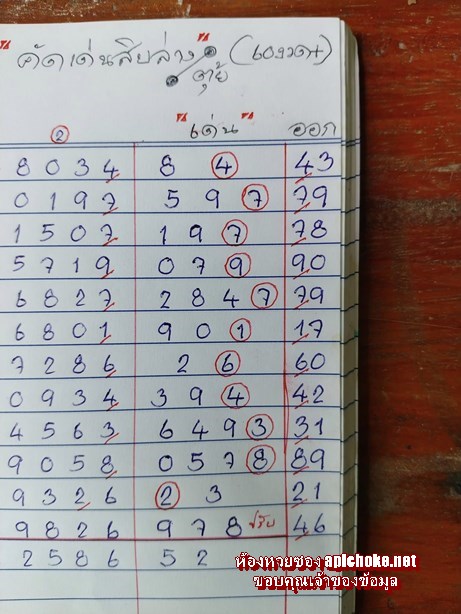 "คัดเด่นสิบล่าง" (เองวด+)
ตุ้ย้
② "เด่น" ออก
8 0 3 4 8 ④ 43
0 1 9 7 5 9 ⑦ 79
1 5 0 7 1 9 ⑦ 78
5 7 1 9 0 7 ⑨ 90
6 8 2 7 2 8 4 ⑦ 79
6 8 0 1 9 0 ① 17
7 2 8 6 2 ⑥ 60
0 9 3 4 3 9 ④ 42
4 5 6 3 6 4 9 ③ 31
9 0 5 8 0 5 7 ⑧ 89
9 3 2 6 ② 3 21
9 8 2 6 9 7 8 ปรับ 46
2 5 8 6 5 2
ห้องหวยซอง aplchoke.net
ขอบคุณเจ้าของข้อมูล